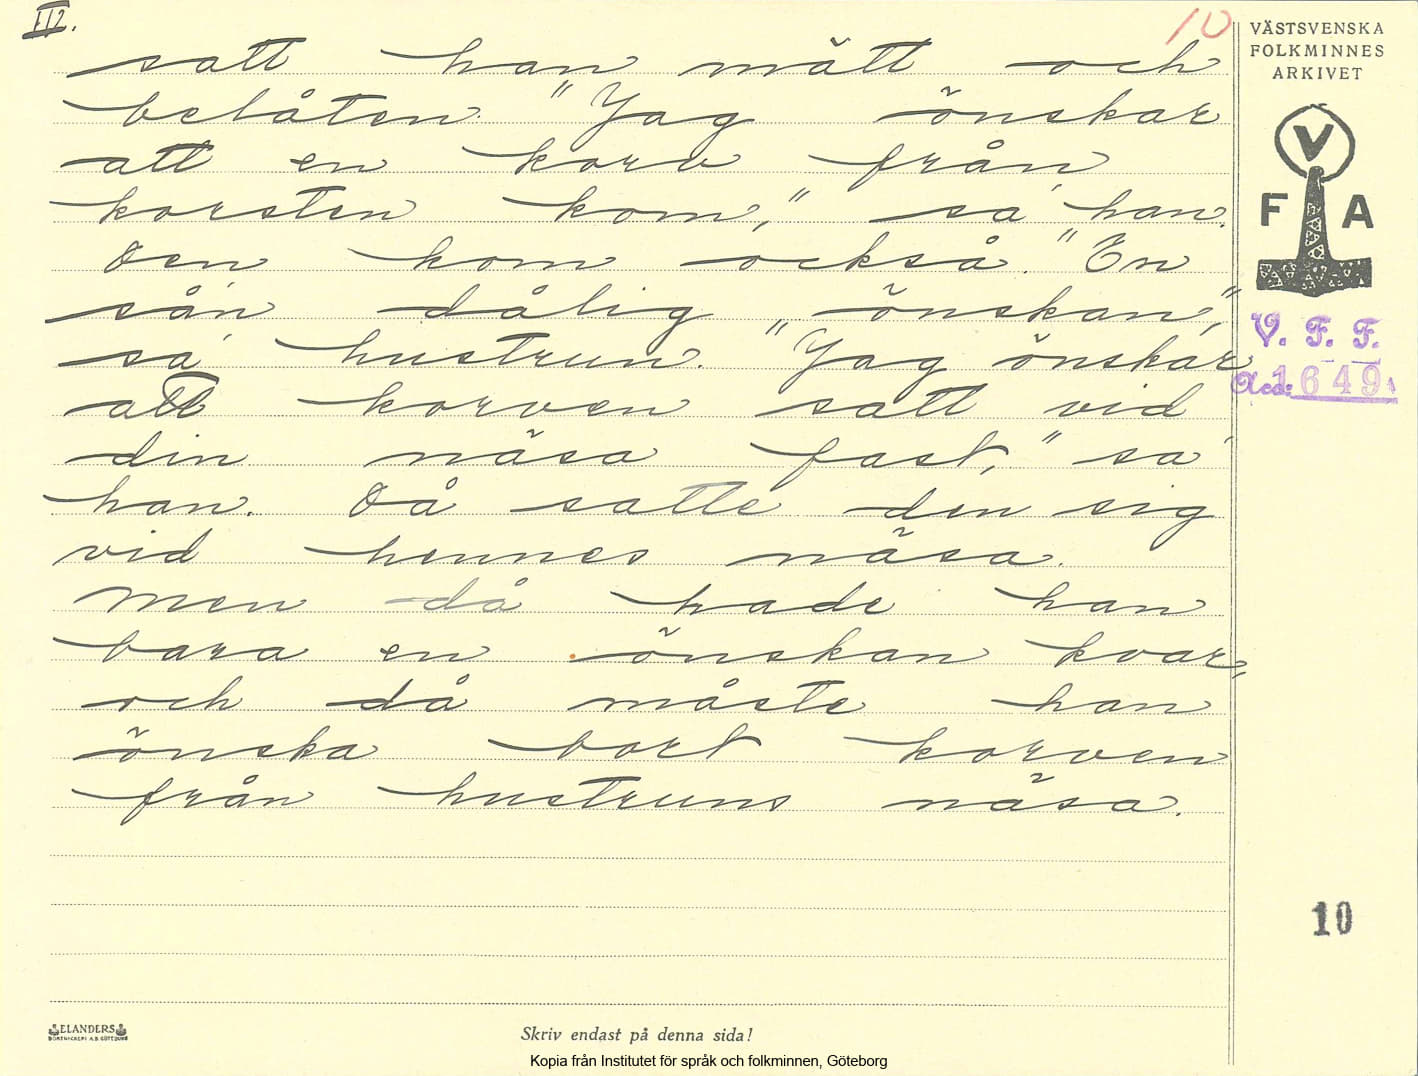 III.
10
satt han mätt och
belåten. "Jag önskar
att en korv från
korsten kom," sa' han.
Den kom också. "En
sån dålig önskan,"
sa' hustrun. "Jag önskar
att korven satt vid
din näsa fast," sa'
han. Då satte den sig
vid hennes näsa.
Men då hade han
bara en önskan kvar,
och då måste han
önska bort korven
från hustruns näsa.
VÄSTSVENSKA
FOLKMINNES
ARKIVET
V
F A
V. F. F.
Acc: 1649
10
ELANDERS
BOKTRYCKERI A.B. GÖTEBORG
Skriv endast på denna sida!
Kopia från Institutet för språk och folkminnen, Göteborg